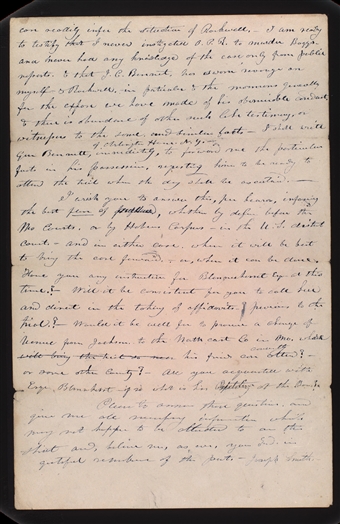 can readily infer the situation of Rockwell. – I am ready
to testify that I never instigated O. P. R. to murder Boggs.
and never had any knowledge of the case only from public
reports. & that J. C. Bennett, has sworn revenge on
myself & Rockwell, in particular & the mormons generally
for the expose we have made of his abominable conduct,
& there is abundance of other such like testimony, or
witnesses to the same, and similar facts – I shall write
of Arlington House N. Y.
Gen Bennett, immediately, to forward me the particular
facts in his possession, requesting him to be ready to
attend the trial when the day shall be ascertained. –
I wish you to answer this, per bearer, informing
the best of whether by defence before the
Mo Courts, or by Habeus Corpus – in the U. S. district
Court. – and in either case, when it will be best
to bring the case forward – or, when it can be done.
Have you any instruction for Blanquehart &c at this
time? – Will it be consistent for you to call here
and direct in the taking of affidavits, previous to the
trial? – Would it be well for to procure a change of
Venue from Jackson to the North east Co in Mo. where
some of
his friends can attend? –
or some other County? – Are you acquainted with
Judge, Blanchart – if so what is his
Please to answer these questions, and
give me all necessary information which
may not happen to be alluded to on this
sheet and, believe me, as, ever, yours &c. in
grateful remembrance of the past. – Joseph Smith.